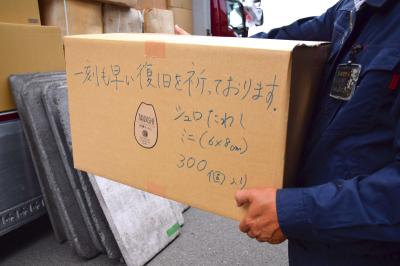 一刻も早い復旧を祈っております。
シュロたわし
ミニ(6×8cm)
300
(個)入り
TAWASHI